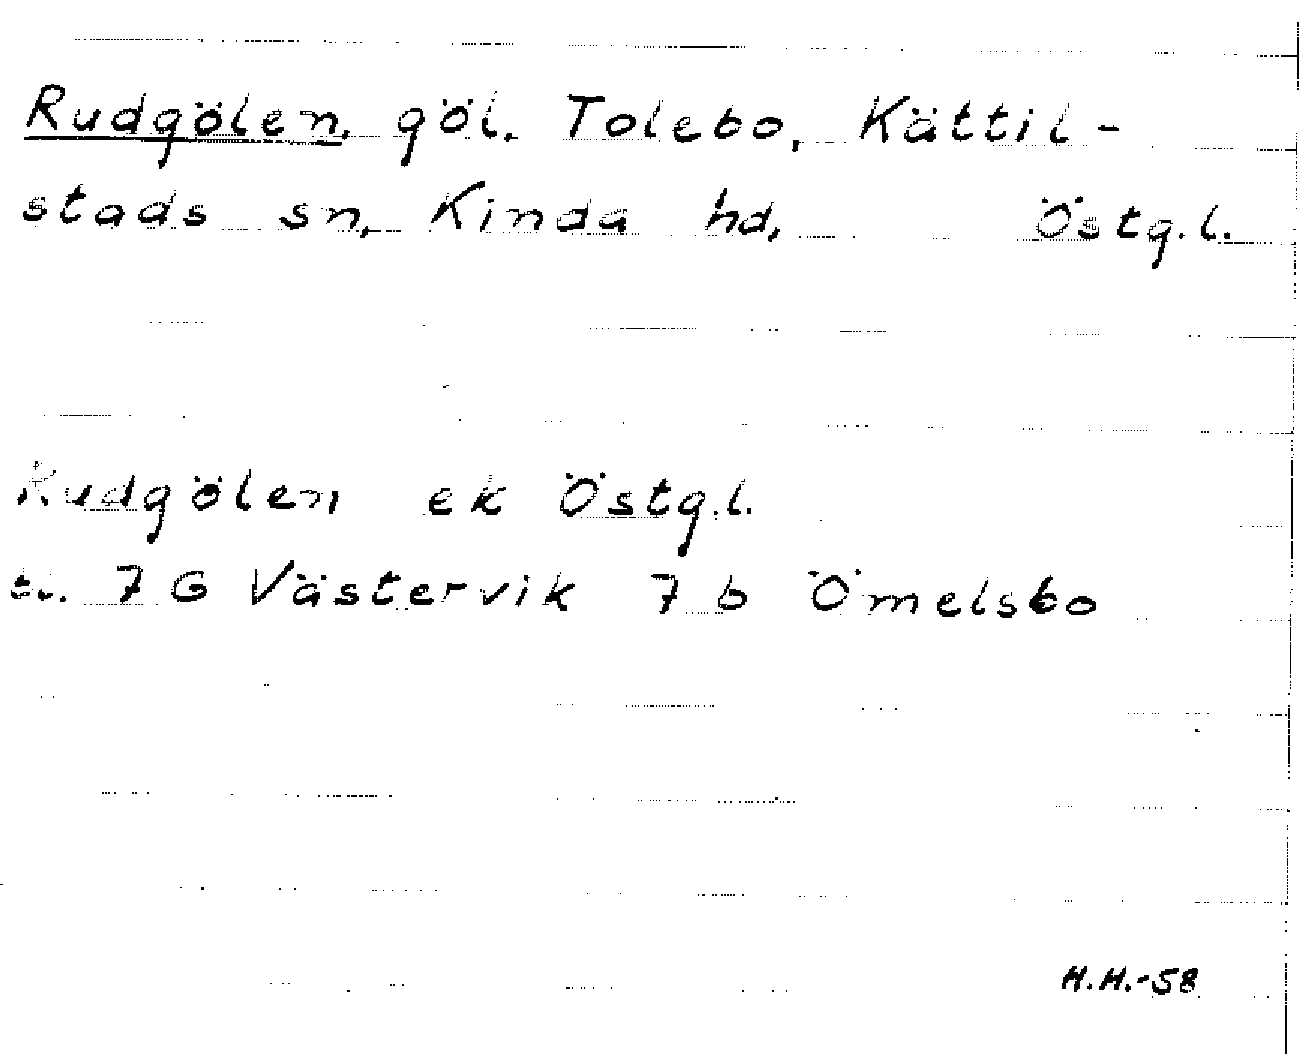 Rudgölen, göl. Tolebo, Kättil-
stads sn, Kinda hd, Östg.l.
Rudgölen ek Östg.l.
7 G Västervik 7 b Ömelsbo
H.H.-58